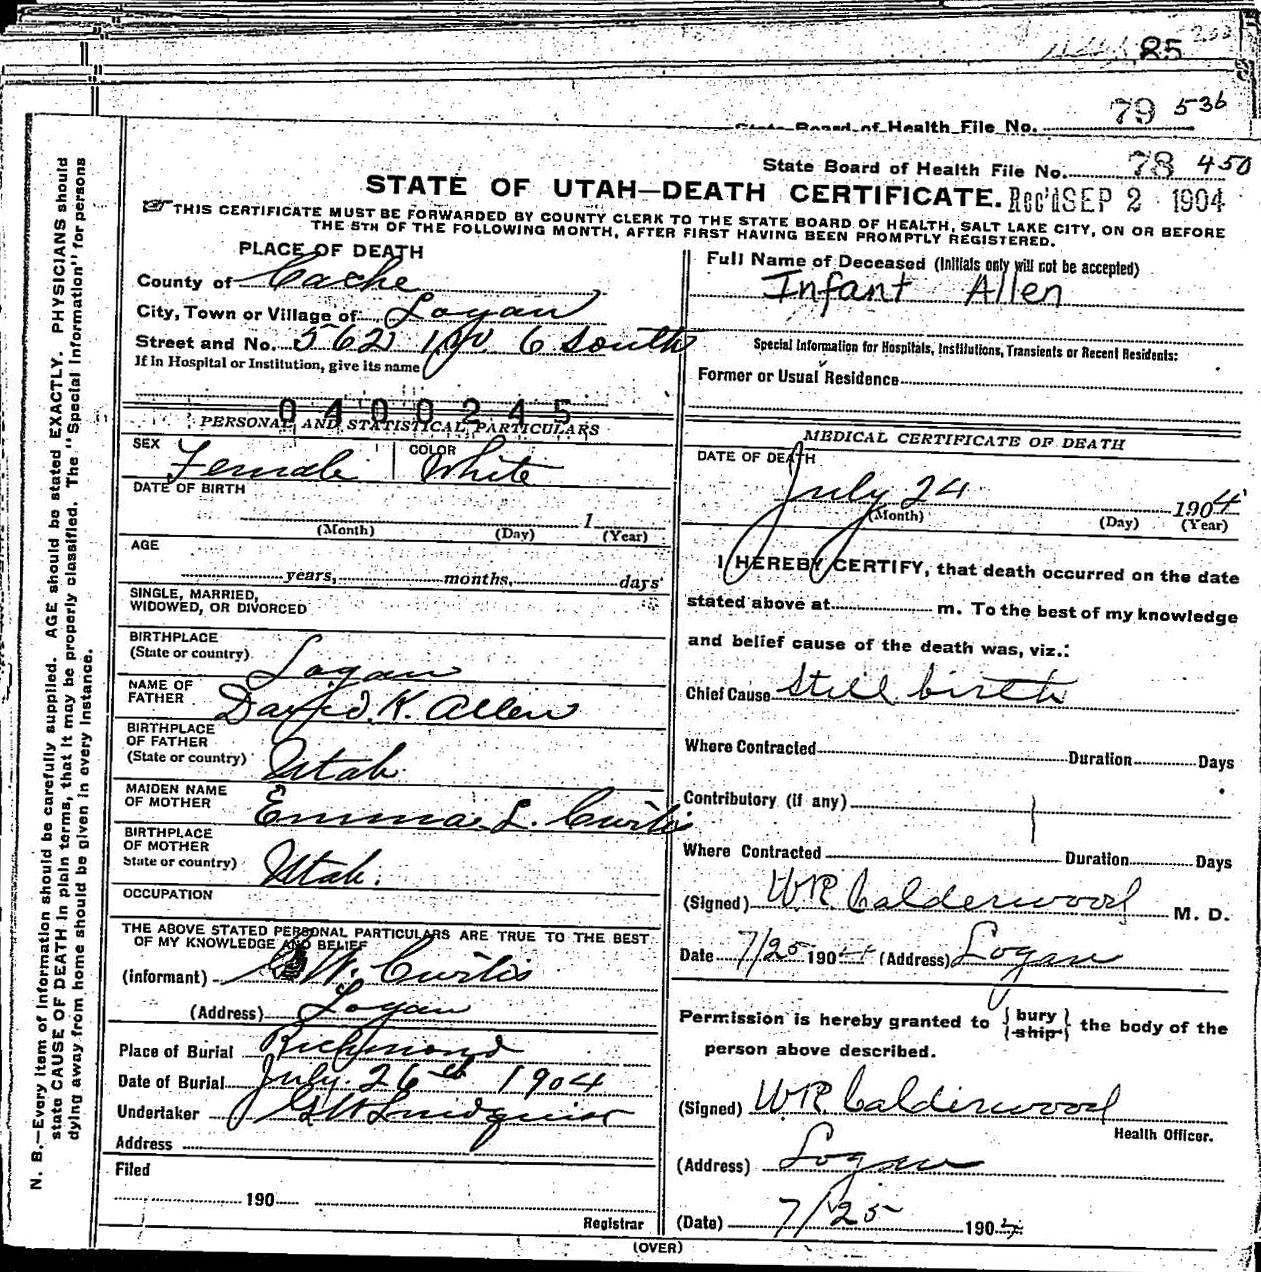 85
79 536
State Board of Health File No.
State Board of Health File No. 78 450
STATE OF UTAH—DEATH CERTIFICATE. Rec'd SEP 2 1904
THIS CERTIFICATE MUST BE FORWARDED BY COUNTY CLERK TO THE STATE BOARD OF HEALTH, SALT LAKE CITY, ON OR BEFORE
THE 5TH OF THE FOLLOWING MONTH, AFTER FIRST HAVING BEEN PROMPTLY REGISTERED.
N. B.—Every item of information should be carefully supplied. AGE should be stated EXACTLY. PHYSICIANS should
state CAUSE OF DEATH in plain terms, that it may be properly classified. The "Special Information" for persons
dying away from home should be given in every instance.
PLACE OF DEATH
County of Cache
City, Town or Village of Logan
Street and No. 562 W. 6 South
If in Hospital or Institution, give its name
0400245
PERSONAL AND STATISTICAL PARTICULARS
SEX Female COLOR White
DATE OF BIRTH
1
(Month) (Day) (Year)
AGE
years, months, days
SINGLE, MARRIED,
WIDOWED, OR DIVORCED
BIRTHPLACE
(State or country) Logan
NAME OF
FATHER David K. Allen
BIRTHPLACE
OF FATHER
(State or country) Utah
MAIDEN NAME
OF MOTHER Emma L. Curtis
BIRTHPLACE
OF MOTHER
State or country) Utah.
OCCUPATION
THE ABOVE STATED PERSONAL PARTICULARS ARE TRUE TO THE BEST
OF MY KNOWLEDGE AND BELIEF
(informant) W. Curtis
(Address) Logan
Place of Burial Richmond
Date of Burial July 26th 1904
Undertaker GW Lindquist
Address
Filed
190
Registrar
Full Name of Deceased (Initials only will not be accepted)
Infant Allen
Special Information for Hospitals, Institutions, Transients or Recent Residents:
Former or Usual Residence
MEDICAL CERTIFICATE OF DEATH
DATE OF DEATH
July 24 1904
(Month) (Day) (Year)
I HEREBY CERTIFY, that death occurred on the date
stated above at m. To the best of my knowledge
and belief cause of the death was, viz.:
Chief Cause Still birth
Where Contracted Duration Days
Contributory (if any)
Where Contracted Duration Days
(Signed) WR Calderwood M. D.
Date 7/25 1904 (Address) Logan
Permission is hereby granted to {bury ship} the body of the
person above described.
(Signed) WR Calderwood
Health Officer.
(Address) Logan
(Date) 7/25 1904
(OVER)